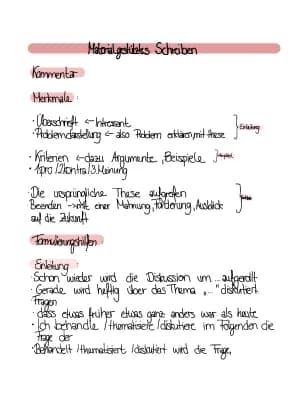 Materialgestütztes Schreiben
Kommentar
Merkmale:
· Überschrift ← Interessant
· Problemdarstellung ← also Problem erklären, mit These } Einleitung
· Kriterien ← dazu Argumente, Beispiele }
· 1 pro / 2 kontra / 3. Meinung
· Die ursprüngliche These aufgreifen
Beenden → mit einer Mahnung, Forderung, Ausblick
auf die Zukunft
Formulierungshilfen
Einleitung
· Schon wieder wird die Diskussion um ... aufgerollt
· Gerade wird heftig über das Thema „..." diskutiert
Fragen
· dass etwas früher etwas ganz anders war als heute
· Ich behandle / thematisiere / diskutiere im Folgenden die
Frage der
· Behandelt / thematisiert / diskutiert wird die Frage,